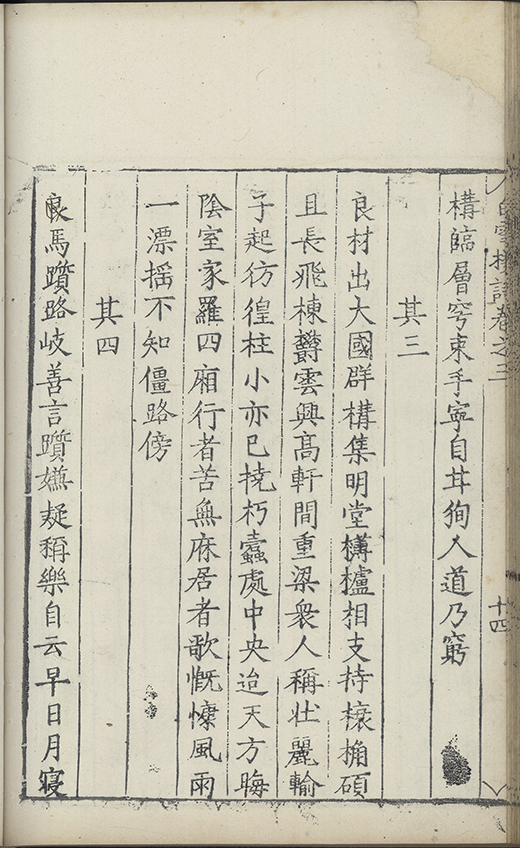 樓詩卷之三
十四
構臨層穹束手寧自甘狥人道乃窮
其三
良材出大國群構集明堂欂櫨相支持榱桷碩
且長飛棟欝雲興高軒間重梁衆人稱壯麗輸
子起彷徨柱小亦已撓朽蠹處中央迨天方晦
陰室家羅四廂行者苦無庥居者歌慨慷風雨
一漂揺不知僵路傍
其四
良馬躓路岐善言躓嫌疑稱樂自云早日月寝